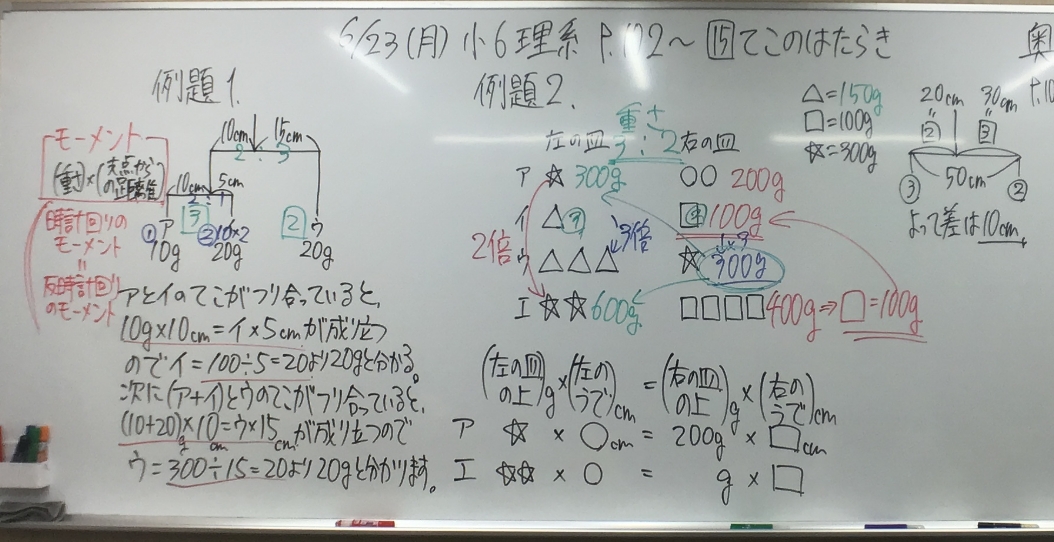 6/23(月) 小6理系 P.102～ 15 てこのはたらき
奥
例題1.
モーメント
(重さ)×(支点からの距離)
時計回りの
モーメント
=
反時計回り
のモーメント
10cm 15cm
2 : 3
10cm 5cm
2 : 1
3
① ア ② 10×2 2 ウ
10g 20g 20g
アとイのてこがつり合っていると、
10g×10cm=イ×5cmが成り立つ
のでイ=100÷5=20より20gと分かる。
次に(ア+イ)とウのてこがつり合っていると、
(10+20)g×10cm=ウ×15cmが成り立つので
ウ=300÷15=20より20gと分かります。
例題2.
重さ
左の皿 3:2 右の皿
ア ☆ 300g ○○ 200g
イ △ 100g
ウ △△△ 3倍 ☆ 300g
2倍
エ ☆☆ 600g □□□□ 400g⇒□=100g
(左の皿の上)g×(左のうで)cm=(右の皿の上)g×(右のうで)cm
ア ☆ × ○cm = 200g × □cm
エ ☆☆ × ○ = g × □
△=150g
□=100g
☆=300g
20cm 30cm
= =
2 3
50cm
③ ②
よって差は10cm。
P.10